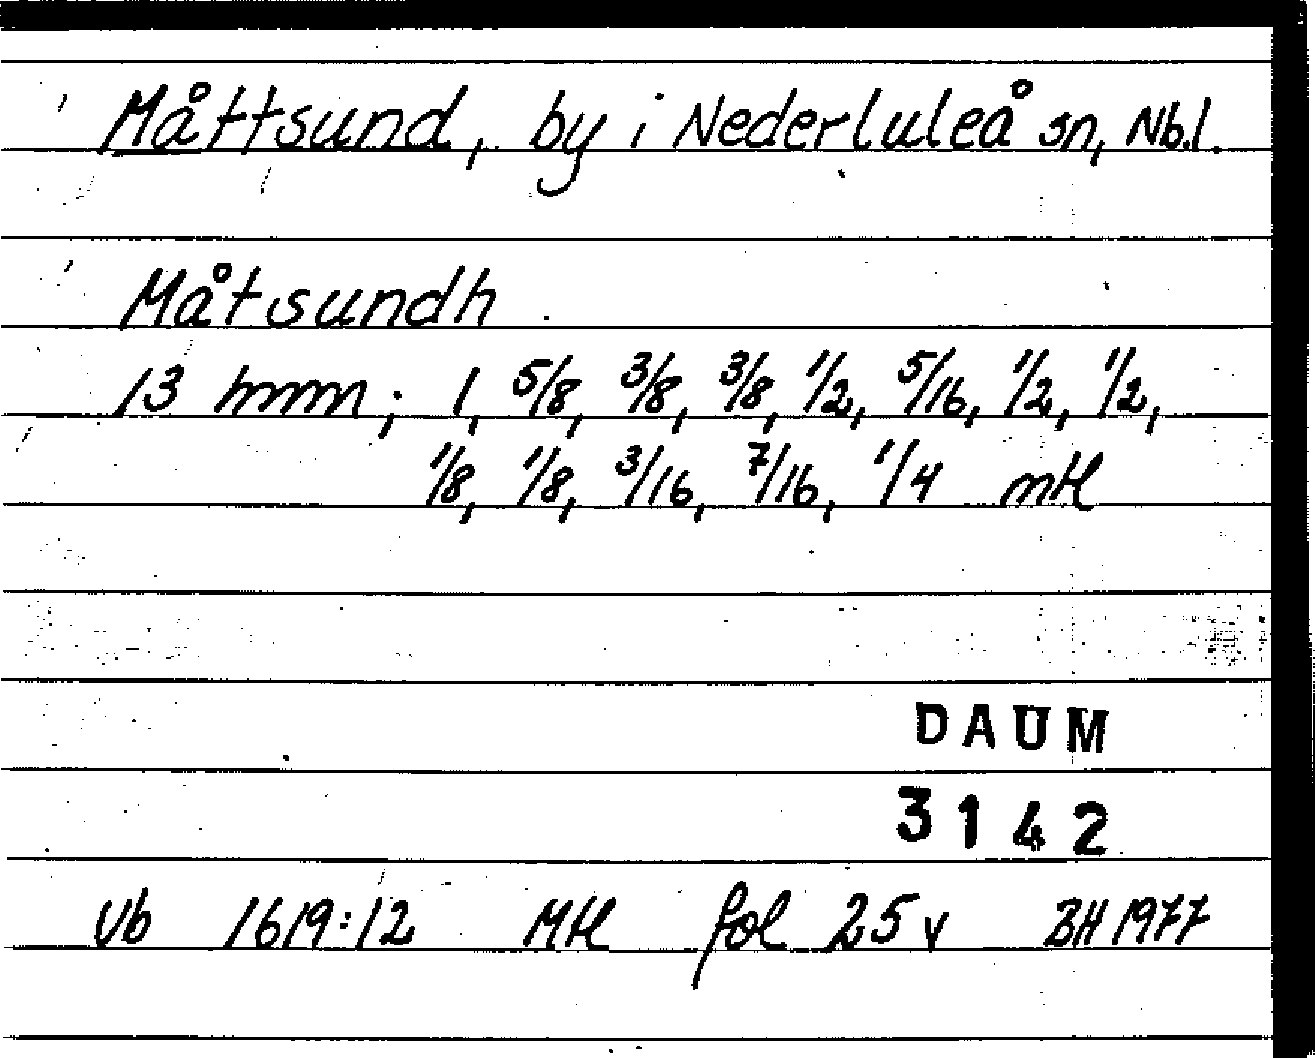 Måttsund, by i Nederluleå sn, Nb.l.
Måtsundh
13 hmn; 1, 5/8, 3/8, 3/8, 1/2, 5/16, 1/2, 1/2,
1/8, 1/8, 3/16, 7/16, 1/4 mtl
DAUM
3142
Vb 1619:12 Mtl fol 25 v BH 1977